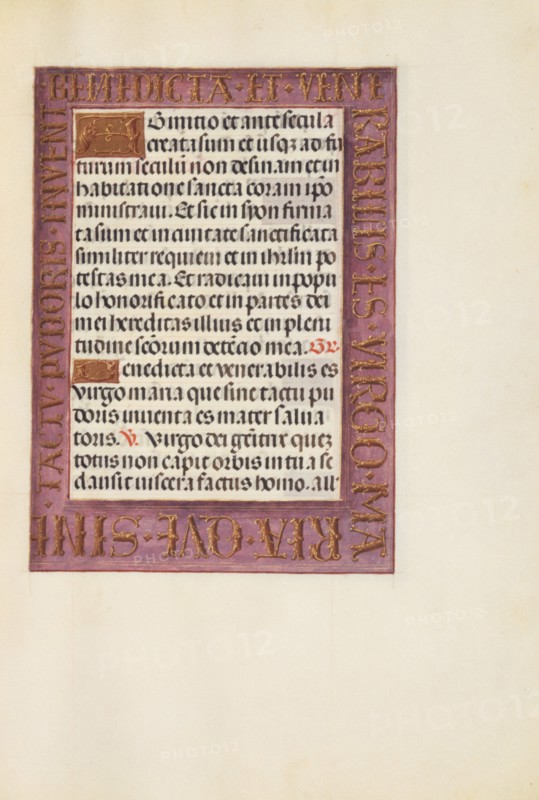 BENEDICTA · ET · VENE
RABILIS · ES · VIRGO · MA
RIA · QVE · SINE
TACTV · PVDORIS · INVENT
AB initio et ante secula
creata sum et usqȝ ad fu
turum seculū non desinam et in
habitatione sancta coram ip̄o
ministraui. Et sic in syon firma
ta sum et in ciuitate sanctificata
similiter requieui et in ihrl̄m po
testas mea. Et radicaui in popu
lo honorificato et in partes dei
mei hereditas illius et in pleni
tudine sc̄orum detētio mea. Gr.
Benedicta et venerabilis es
virgo maria que sine tactu pu
doris inuenta es mater salua
toris. V. Virgo dei genitrix quez
totus non capit orbis in tua se
clausit uiscera factus homo. all'
PHOTO12